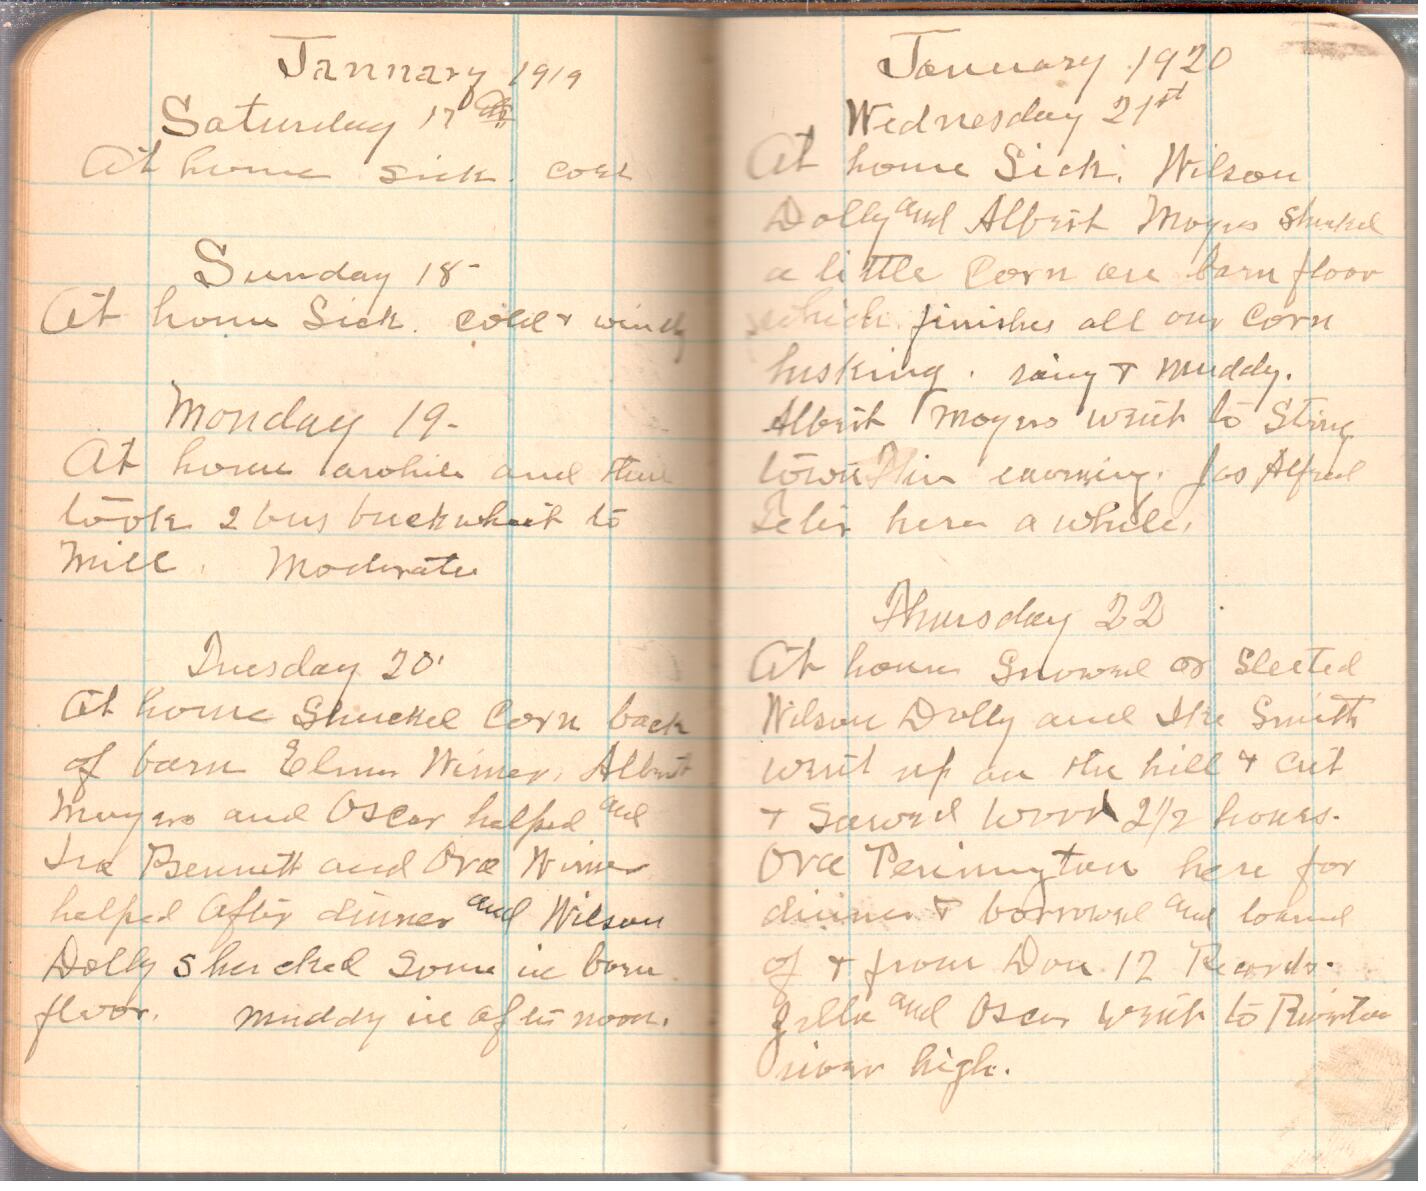 January 1919
Saturday 17th
At home sick. cold
Sunday 18-
At home Sick. cold & windy
Monday 19-
At home awhile and then
took 2 bus buckwheat to
Mill. Moderate
Tuesday 20'
At home Shucked Corn back
of barn Elmer Wimer, Albert
Moyers and Oscar helped and
Ira Bennett and Ora Wimer
helped After dinner and Wilson
Dolly shucked Some in barn
floor. muddy in afternoon.
January 1920
Wednesday 21st
At home Sick. Wilson
Dolly and Albert Moyers shucked
a little Corn on barn floor
which finishes all our Corn
husking. rainy & muddy.
Albert Moyers went to String
town in evening. Jas Alfred
Teter here awhile.
Thursday 22
At home Snowed or Sleeted
Wilson Dolly and Ike Smith
went up on the hill & cut
& Sawed Wood 2 1/2 hours.
Ora Pennington here for
dinner & borrowed and loaned
of & from Don 12 Records.
Zella and Oscar went to Riverton
river high.